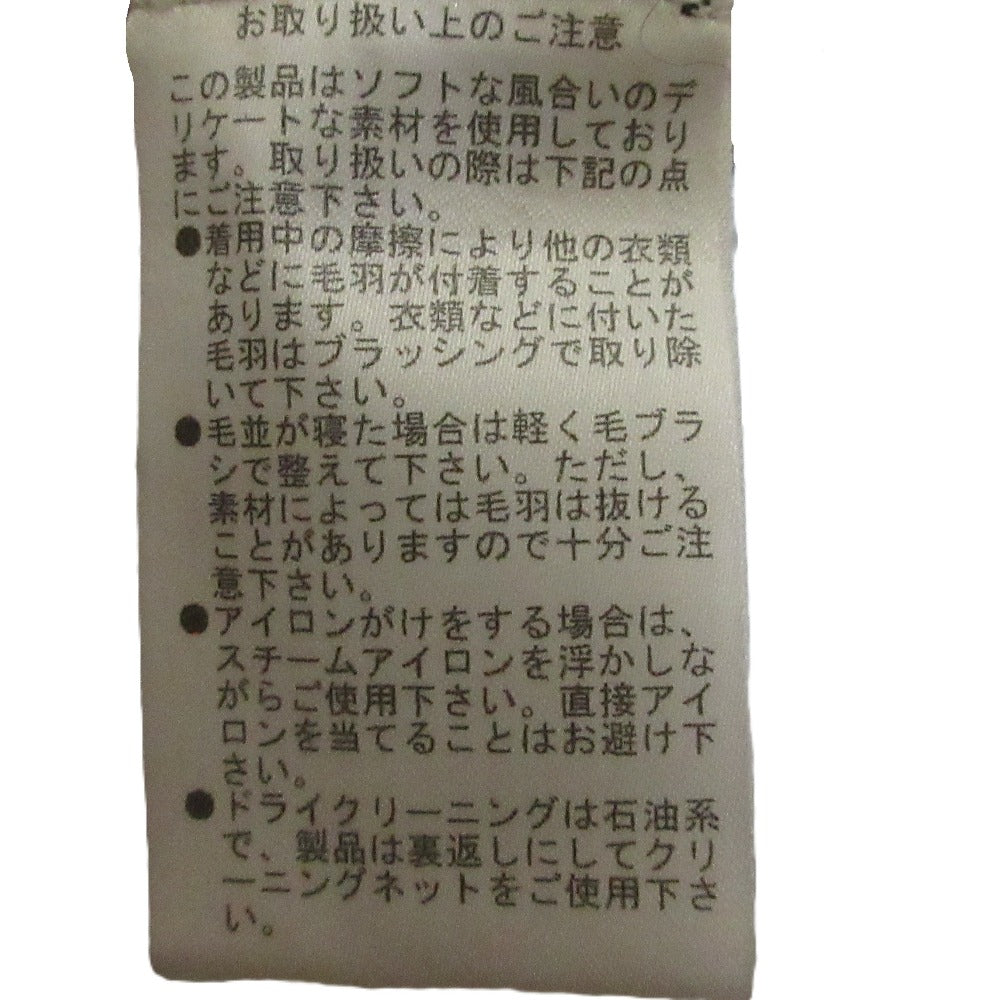 お取り扱い上のご注意
この製品はソフトな風合いのデ
リケートな素材を使用しており
ます。取り扱いの際は下記の点
にご注意下さい。
●着用中の摩擦により他の衣類
などに毛羽が付着することが
あります。衣類などに付いた
毛羽はブラッシングで取り除
いて下さい。
●毛並が寝た場合は軽く毛ブラ
シで整えて下さい。ただし、
素材によっては毛羽は抜ける
ことがありますので十分ご注
意下さい。
●アイロンがけをする場合は、
スチームアイロンを浮かしな
がらご使用下さい。直接アイ
ロンを当てることはお避け下
さい。
●ドライクリーニングは石油系
で、製品は裏返しにしてクリ
ーニングネットをご使用下さ
い。